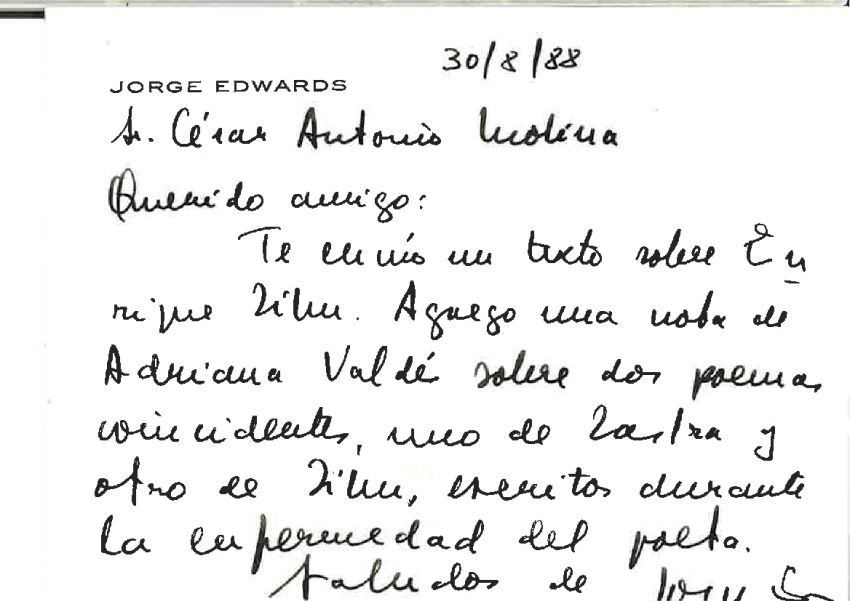 30/8/88
JORGE EDWARDS
Sr. César Antonio Molina
Querido amigo:
Te envío un texto sobre En
rique Lihn. Agrego una nota de
Adriana Valdés sobre dos poemas
coincidentes, uno de Lastra y
otro de Lihn, escritos durante
la enfermedad del poeta.
Saludos de Jorge E